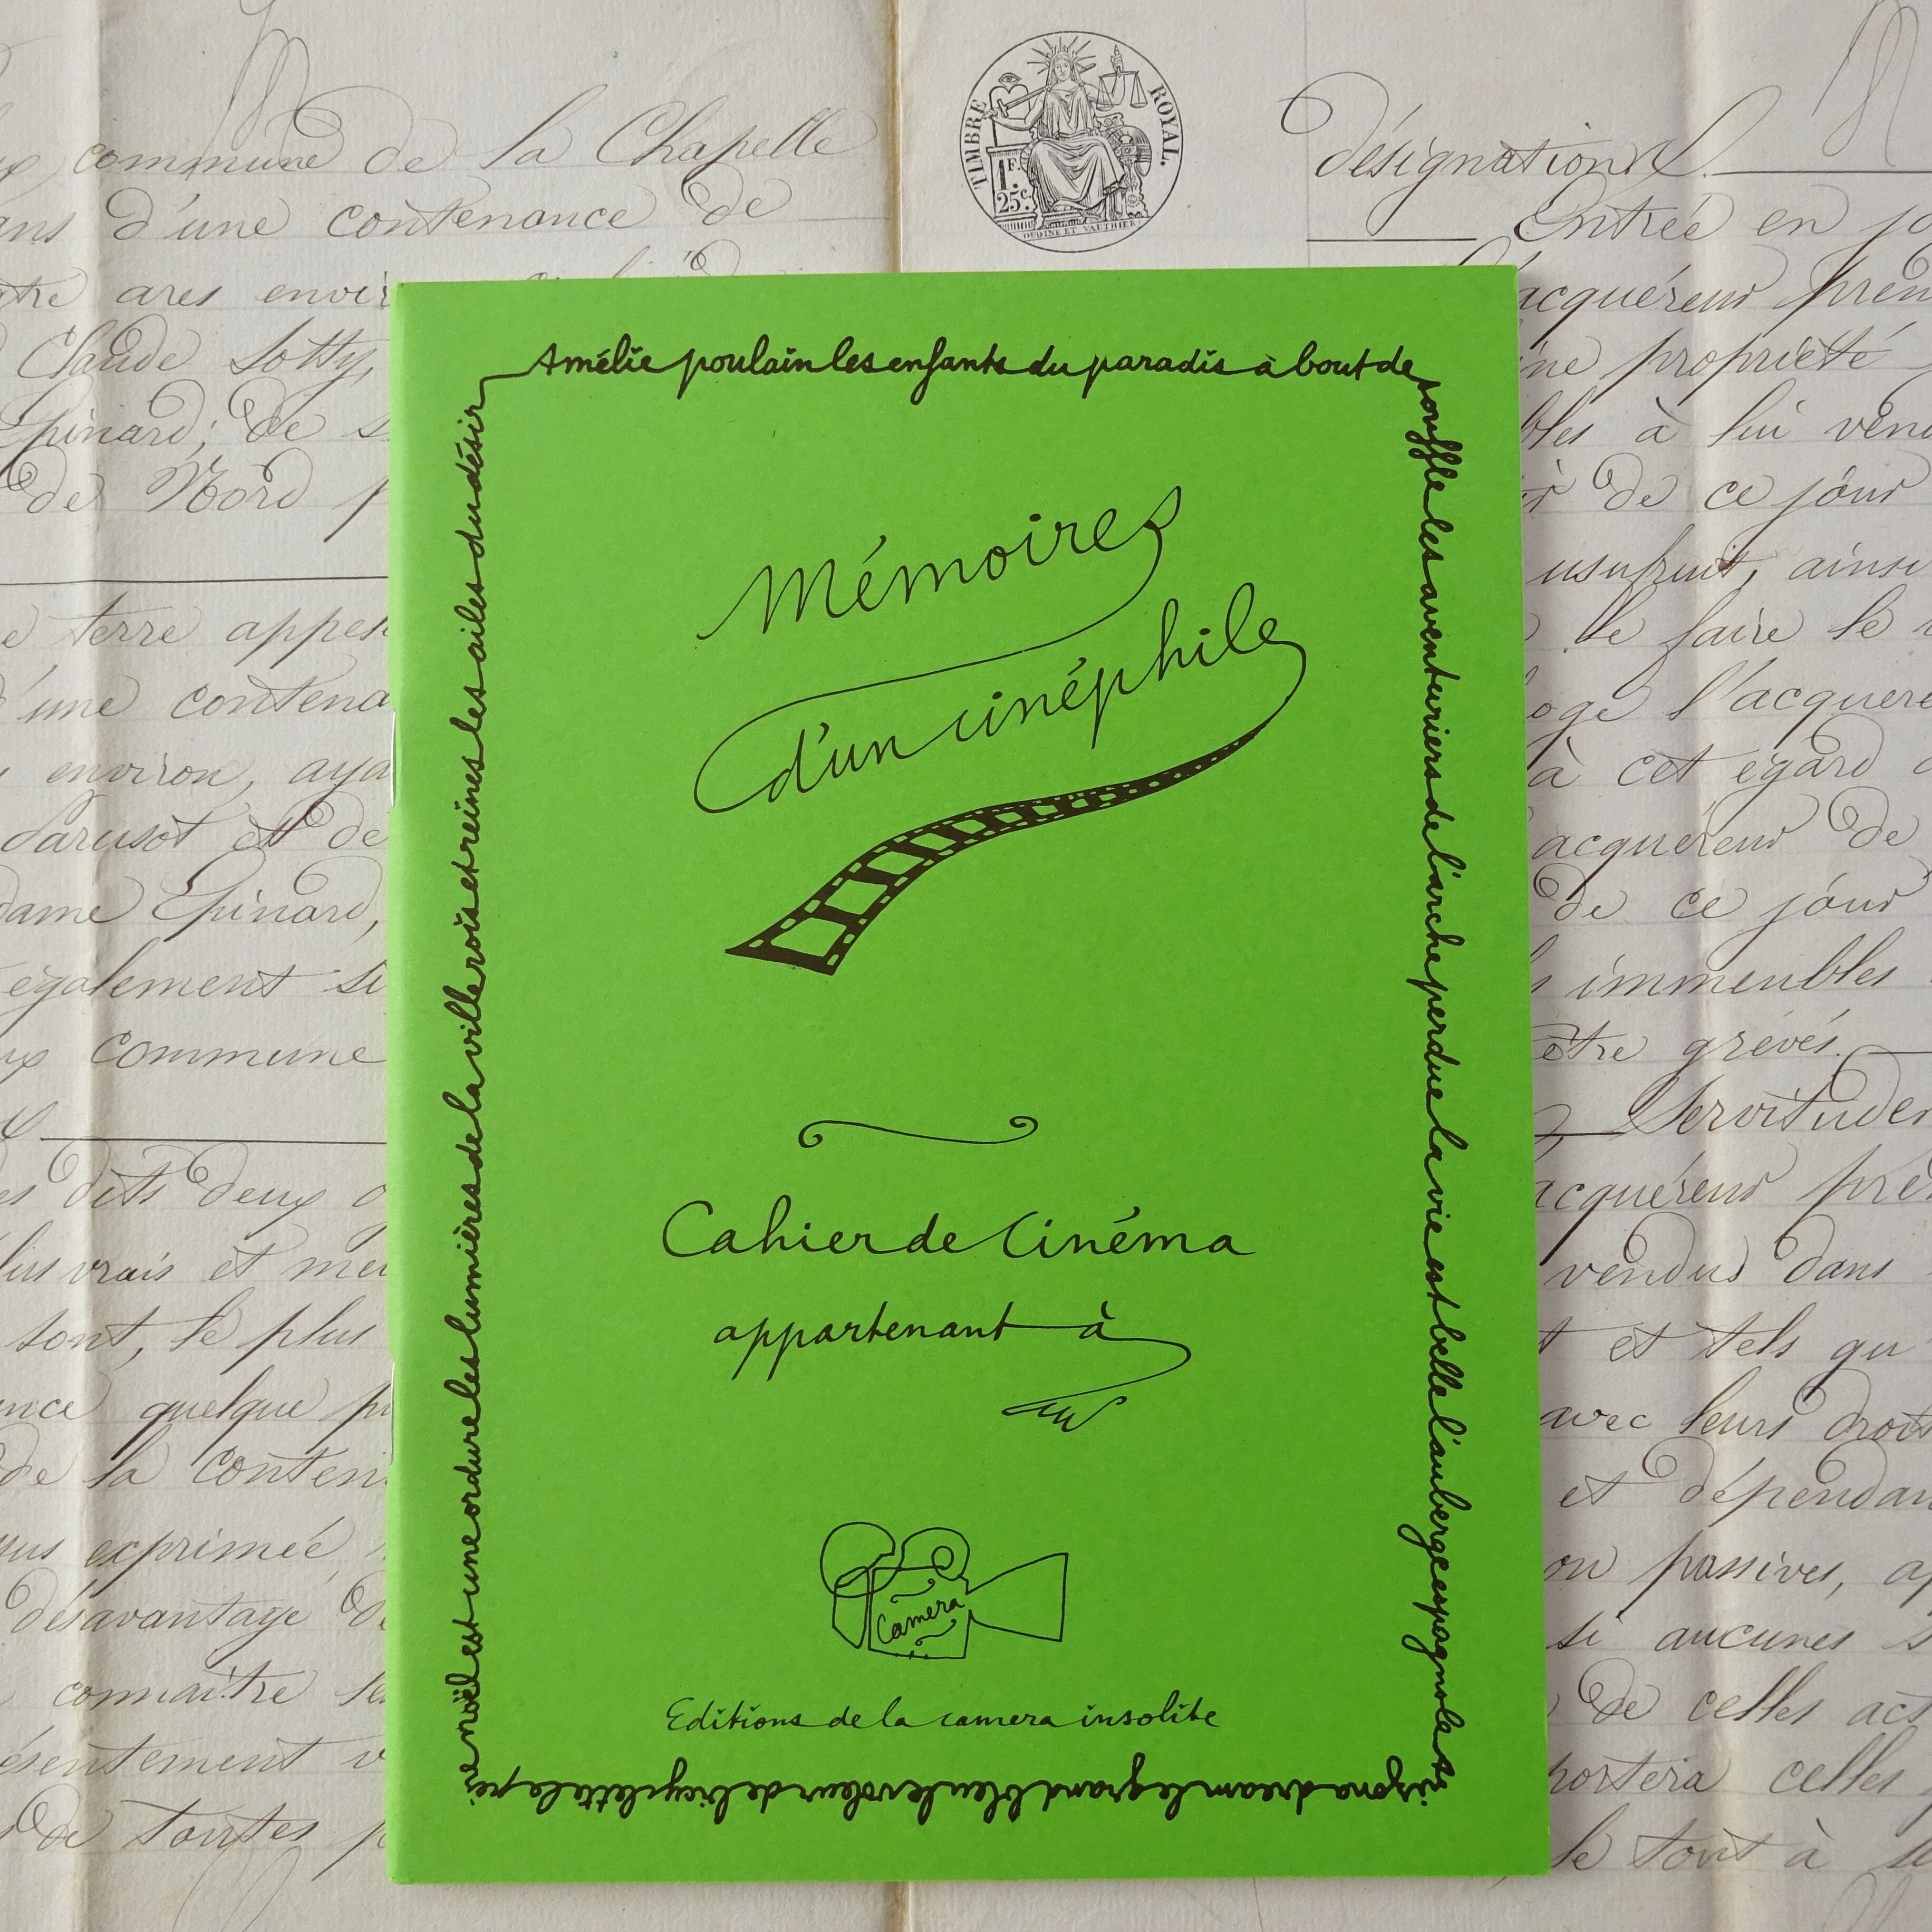 commune de la Chapelle
d'une contenance de
ares
Claude Sotty,
Epinard; de
de Nord
terre
d'une
environ,
et de
dame Epinard,
également
commune
dits deux
vrais et
sont, le plus
quelque
de la
exprimée
désavantage
connaître
de toutes
TIMBRE ROYAL.
1F.
25c.
OUDINÉ ET VAUTHIER
désignation
Entrée en
acquéreur
propriété
à lui
de ce jour
usufruit, ainsi
le faire le
à cet égard
acquéreur de
de ce jour
immeubles
être grévés.
Servitudes
acquéreur
vendus dans
et tels qu
avec leurs droits
et
ou passives,
si aucunes
de celles
portera celles
le tout à
Amélie poulain les enfants du paradis à bout de
souffle les aventuriers de l'arche perdue la vie est belle l'auberge espagnole
arizona dream le grand bleu le voleur de bicyclette le pè
re noël est une ordure les lumières de la ville rois et reines les ailes du désir
Mémoires
d'un cinéphile
Cahier de Cinéma
appartenant à
Camera
Editions de la camera insolite